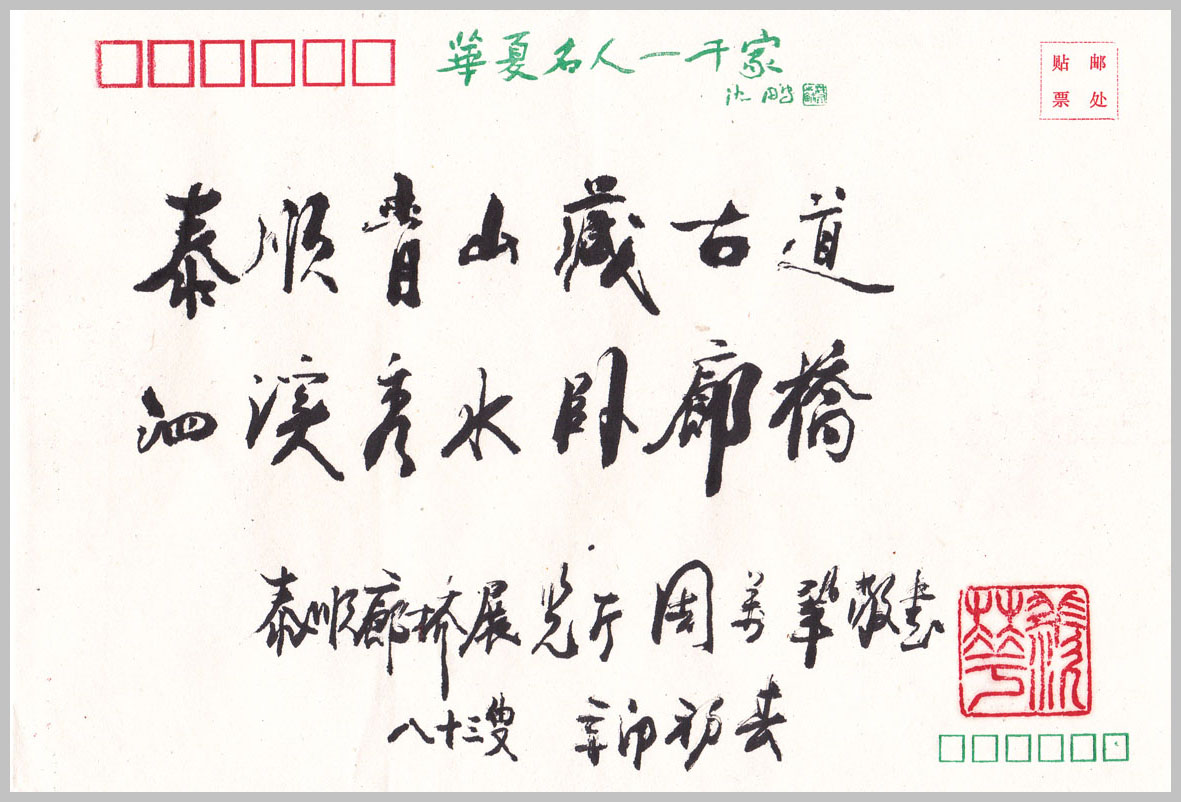 華夏名人一千家
沈鹏
贴邮
票处
泰顺青山藏古道
泗溪秀水卧廊橋
泰顺廊桥展览厅 周萬 敬書
八十三叟 辛卯初春